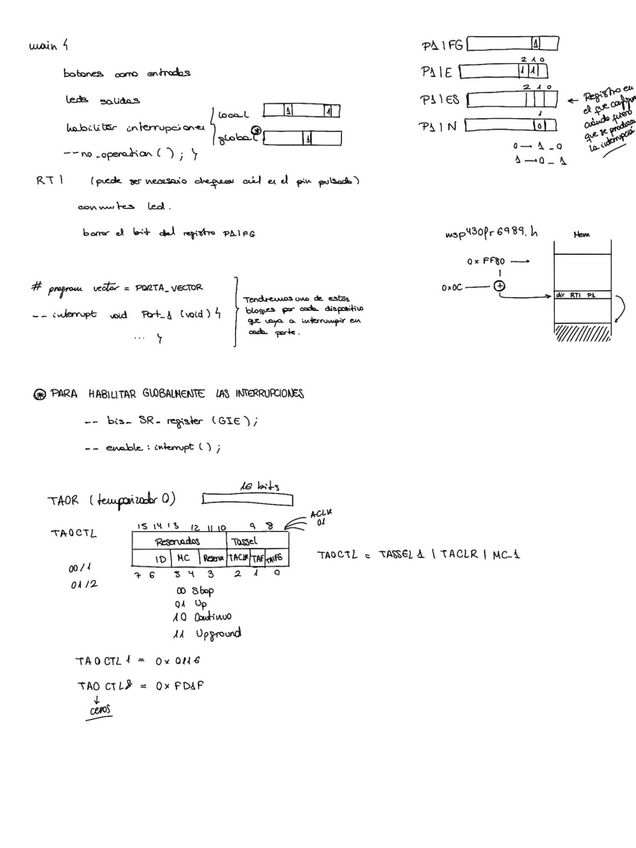 main {
botones como entradas
leds salidas
habilitar interrupciones { local 1 1
global * 1
--no_operation(); }
RTI (puede ser necesario chequear cuál es el pin pulsado)
conmutes led.
borrar el bit del registro P1IFG
P1IFG 1
2 1 0
P1IE 1 1
2 1 0
P1IES
← Registro en el que configuro
cuándo quiero
que se produzca
la interrupción
1
P1IN 0
0 → 1 _ 0
1 → 0 _ 1
msp430fr6989.h Mem
0xFF80 →
0x0C → +
dir RTI P1
# program vector = PORTA_VECTOR
-- interrupt void Port_1 (void) {
... }
Tendremos uno de estos
bloques por cada dispositivo
que vaya a interrumpir en
cada parte.
* PARA HABILITAR GLOBALMENTE LAS INTERRUPCIONES
-- bis_ SR_ register (GIE);
-- enable: interrupt ();
TA0R (temporizador 0) 16 bits
TA0CTL 15 14 13 12 11 10 9 8 ACLK
01
Reservados Tassel
ID MC Reserva TACLR
7 6 5 4 3 2 1 0
00/1
01/2
00 Stop
01 Up
10 Continuo
11 Upground
TA0CTL = TASSEL1 | TACLR | MC_1
TA0 CTL 1 = 0x0116
TA0 CTL& = 0xFD1F
↓
ceros